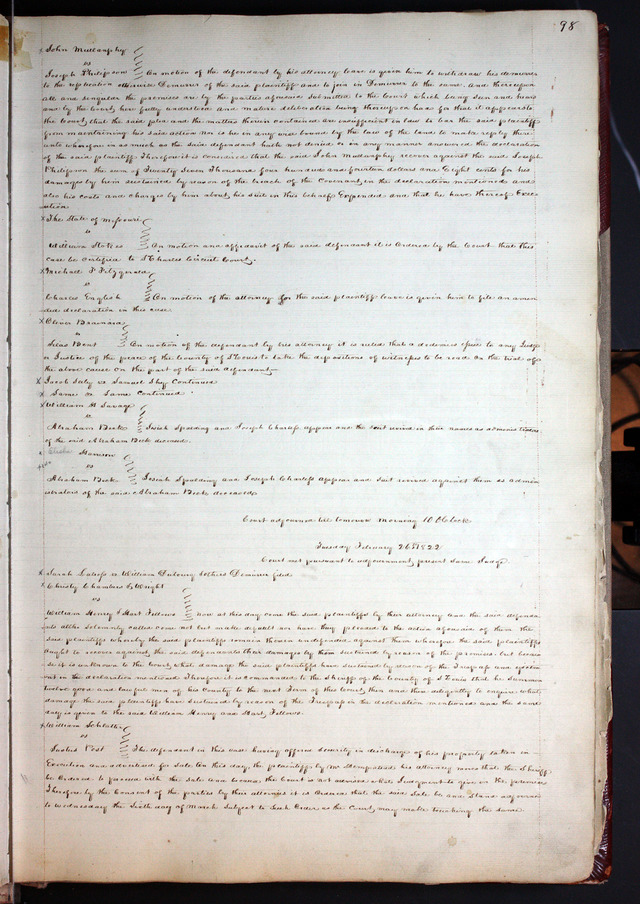 98
x John Mullanphy
vs
Joseph Philipson On motion of the defendant by his attorney leave is given him to withdraw his demurrer
to the replication otherwise Demurrer of the said plaintiff and to join in Demurrer to the same. And thereupon
all and singular the premises are by the parties aforesaid submitted to the court which being seen and heard
and by the court here fully understood and mature deliberation being thereupon had for that it appears to
the court, that the said plea and the matter therein contained are insufficient in law to bar the said plaintiff
from maintaining his said action nor is he in any wise bound by the law of the land to make reply there
unto wherefore in as much as the said defendant hath not denied or in any manner answered the declaration
of the said plaintiff Therefore it is considered that the said John Mullanphy recover against the said Joseph
Philipson the sum of Twenty Seven Thousand four hundred and fourteen dollars and Eight cents for his
damages by him sustained by reason of the breach of the Covenant in the declaration mentioned and
also his costs and charges by him about his suit in this behalf Expended and that he have thereof Exec
ution
x The State of Missouri
vs
William States On motion and affidavit of the said defendant it is Ordered by the Court that this
case be certified to St Charles Circuit Court.
x Michael P Fitzgerald
vs
Charles English On motion of the attorney for the said plaintiff leave is given him to file an amen
ded declaration in this case
x Oliver
vs
Silas Bent On motion of the defendant by his attorney it is ruled that a dedimus issue to any Judge
or Justice of the peace of the County of St Louis to take the depositions of witnesses to be read on the trial of
the above cause on the part of the said defendant
x Jacob vs Samuel Continued
x Same vs Same Continued
x William H Savage
vs
Abraham Beck Josiah Spalding and Joseph Charless appear and the suit revived in their names as administrators
of the said Abraham Beck deceased.
x Harrison
vs
Abraham Beck Josiah Spalding and Joseph Charless appear and suit revived against them as admin
istrators of the said Abraham Beck deceased
Court adjourned till tomorrow morning 10 O'Clock
Tuesday February 26th 1822
Court met pursuant to adjournment, present same Judge
x Sarah vs William Dubourg & others Demurrer filed
x Christy Chambers & Wright
vs
William Henry & Hart Fellows Now at this day come the said plaintiffs by their attorney and the said defenda
nts altho solemnly called come not but make default nor have they pleaded to the action aforesaid of them the
said plaintiffs whereby the said plaintiffs remain therein undefended against them wherefore the said plaintiffs
ought to recover against the said defendants their damages by them sustained by reason of the premises. but becau
se it is unknown to the court what damage the said plaintiffs have sustained by reason of the Trespass and
in the declaration mentioned Therefore it is commanded to the Sheriff of the County of St Louis that he summon
twelve good and lawful men of his County to the next Term of this Court, then and there diligently to enquire what
damage the said plaintiffs have sustained by reason of the Trespass in the declaration mentioned and the same
day is given to the said William Henry and Hart Fellows.
x William Schlatter
vs
Justus Post The defendant in this case having offered security in discharge of his property taken in
Execution and advertised for sale on this day, the plaintiff by his attorney moves that the Sheriff
be Ordered to proceed with the sale and because the Court is not advised what Judgment to give in the premises
Therefore by the Consent of the parties by their attornies it is Ordered that the said Sale be and Stand adjourned
to Wednesday the Sixth day of March Subject to such Order as the Court may make touching the same.